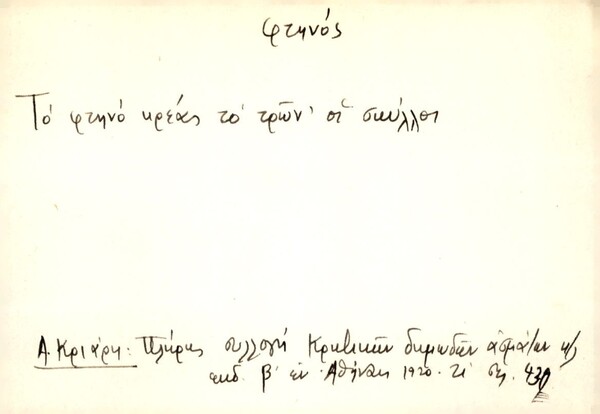 φτηνός
Τό φτηνό κρέας τό τρῶν' οἱ σκύλλοι
Α. Κριάρη: Πλήρης συλλογή Κρητικῶν δημωδῶν ἀσμάτων κ/
ἐκδ. β' ἐν Ἀθήναις 1920. σελ. 430